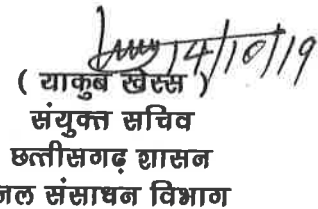 14/10/19
( याकुब खेस्स )
संयुक्त सचिव
छत्तीसगढ़ शासन
जल संसाधन विभाग